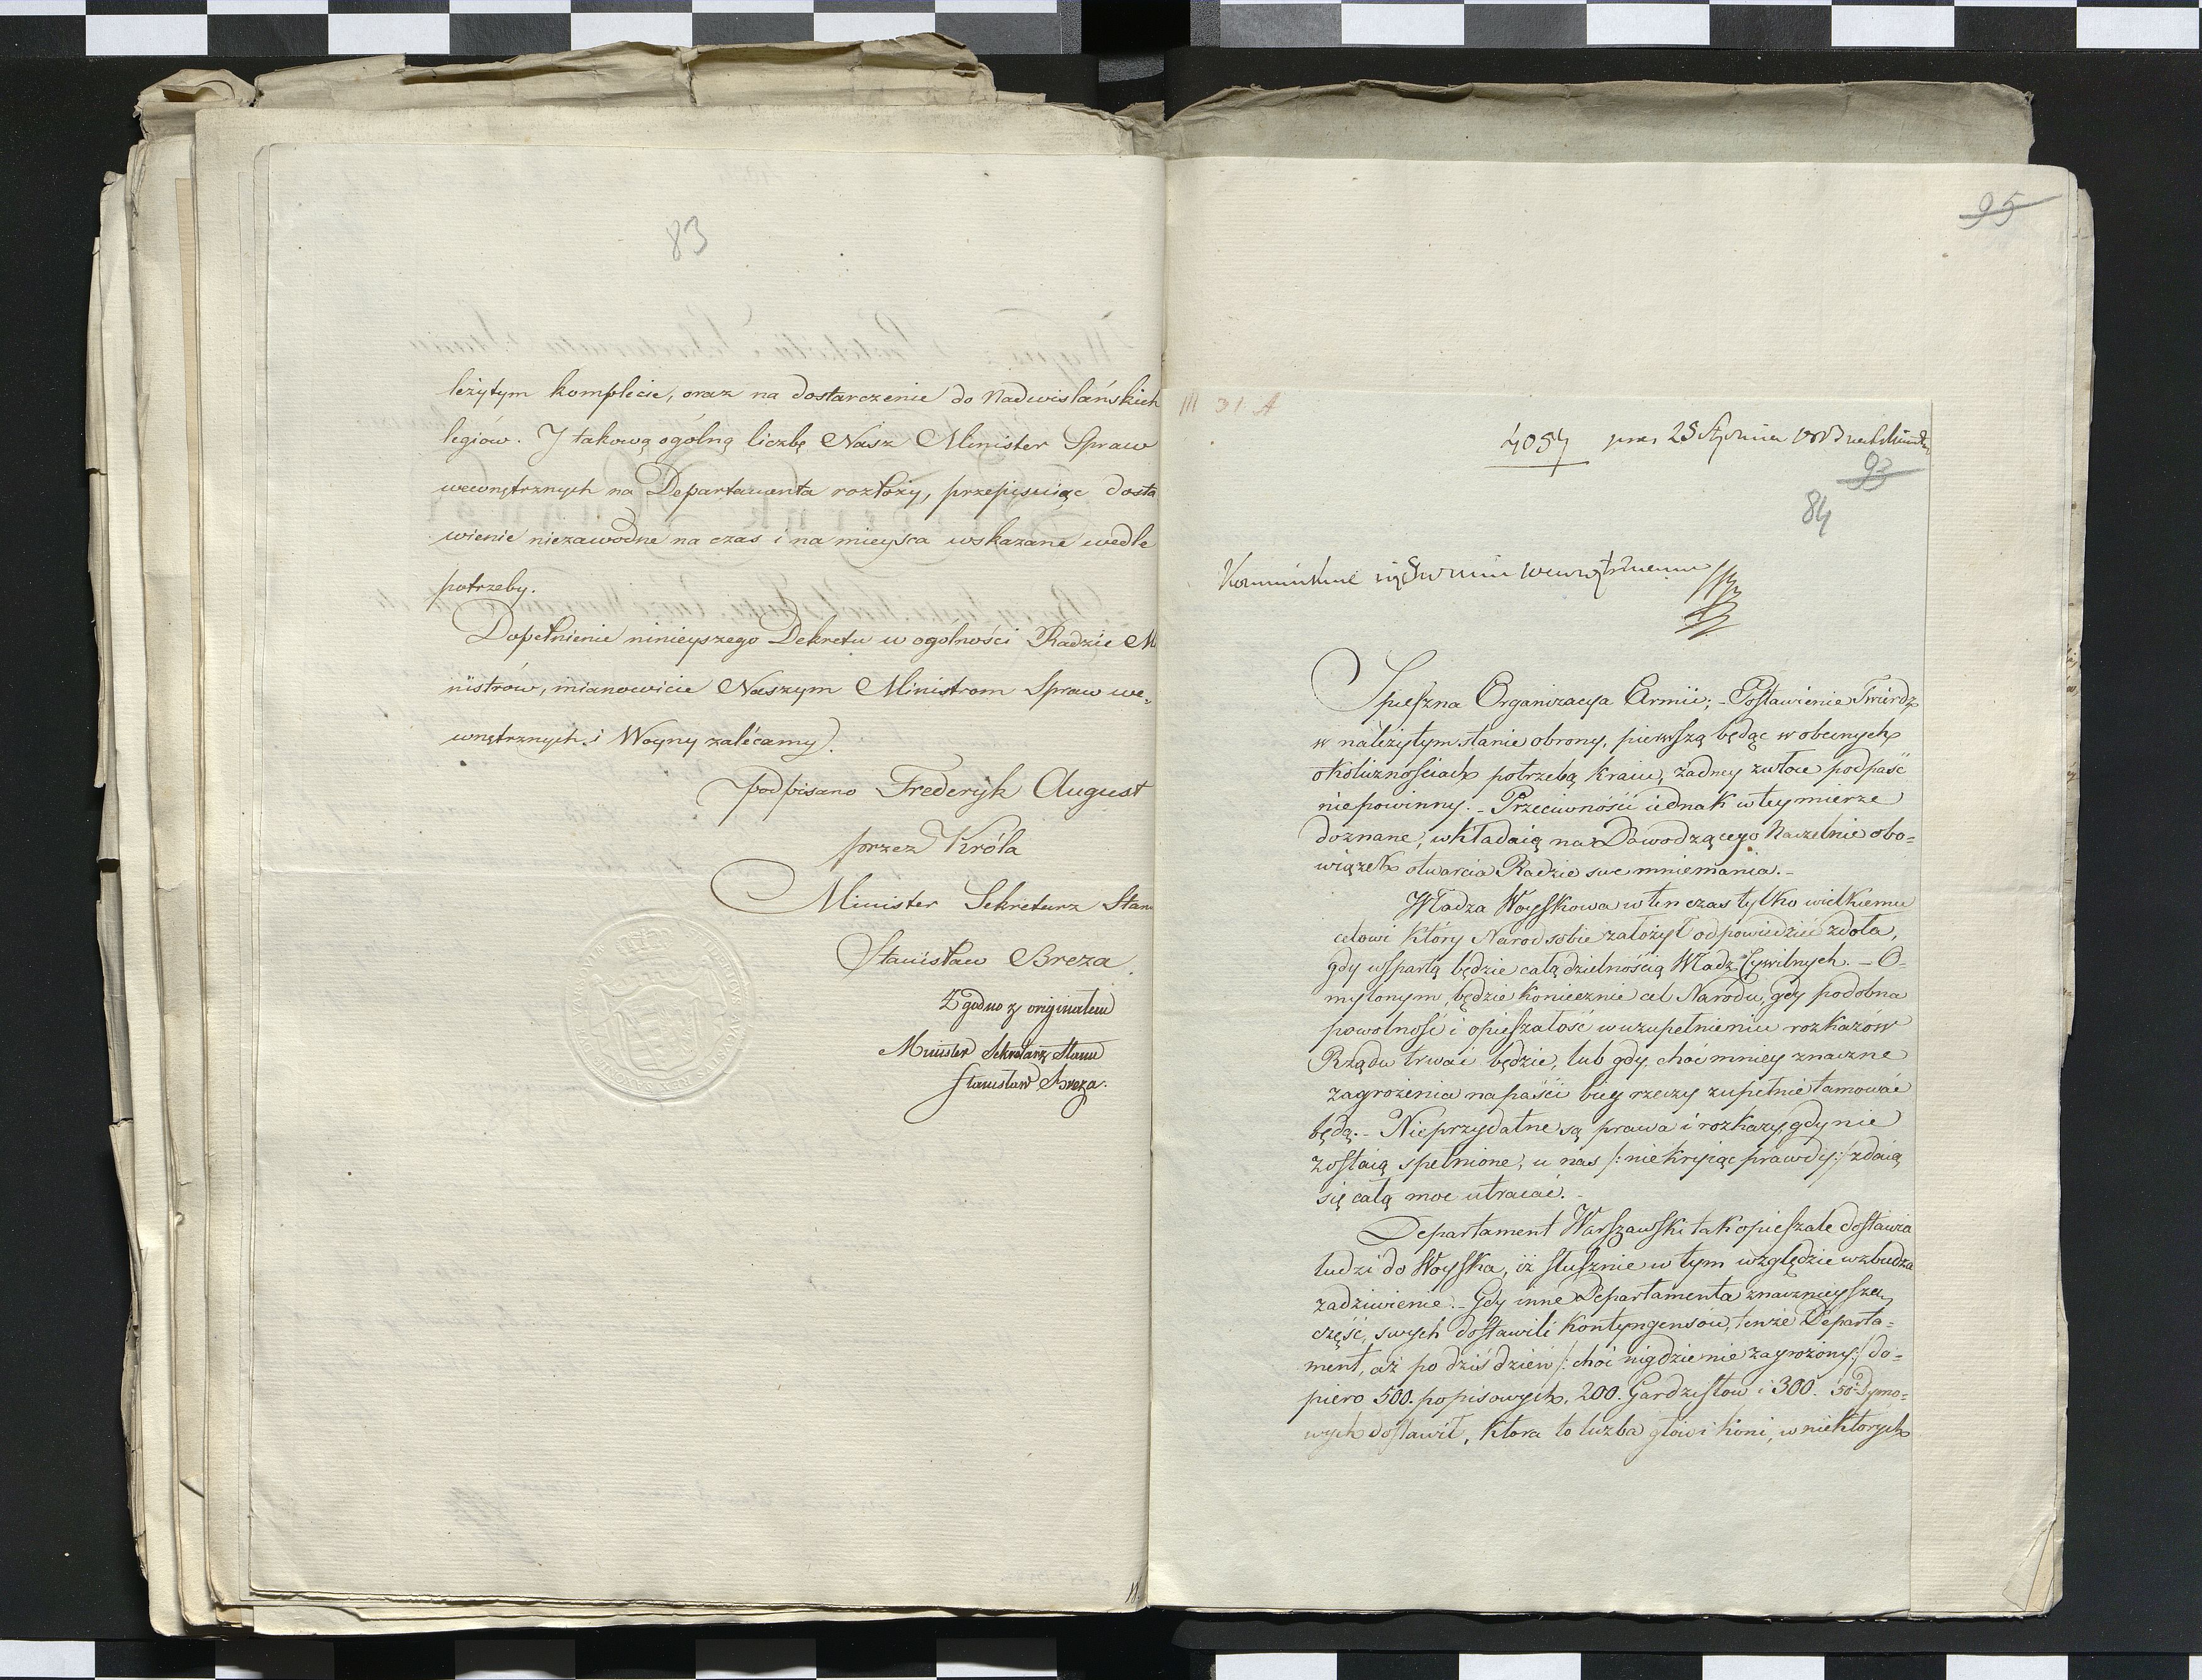 83
leżytym komplecie, oraz na dostarczenie do Nadwislańskich
legiów. J takową ogólną liczbę Nasz Minister Spraw
wewnętrznych na Departamenta rozłoży, przepisuiąc dosta
wienie niezawodne na czas i na mieysca wskazane wedle
potrzeby.
Dopełnienie ninieyszego Dekretu w ogólności Radzie Mi
nistrów, mianowicie Naszym Ministrom Spraw we=
wnętrznych i Woyny zalécamy.
podpisano Frederyk August
przez Króla
Minister Sekretarz Stanu
Stanisław Breza.
Zgodno z originałem
Minister Sekretarz Stanu
Stanisław Breza.
95
III 31. A
4054 25 Stycznia
93
84
Spieszna Organizacya Armii; - Postawienie Twierdz
w należytym stanie obrony, pierwszą będąc w obecnych
okolicznościach potrzebą kraiu, żadney zwłoce podpaść
niepowinny. - Przeciwności iednak w tey mierze
doznane, wkładaią na Dowodzącego Naczelnie obo=
wiązek otwarcia Radzie swe mniemania. -
Władza Woyskowa w ten czas tylko wielkiemu
celowi który Narod sobie założył odpowiedzieć zdoła,
gdy wspartą będzie całą dzielnością Władz Cywilnych. - O=
mylonym będzie koniecznie cel Narodu, gdy podobna
powolność i opieszałość w uzupełnieniu rozkazów
Rządu trwać będzie, lub gdy, choć mniey znaczne
zagrożenia napaści bieg rzeczy zupełnie tamować
będą. - Nieprzydatne są prawa i rozkazy, gdy nie
zostaią spełnione, u nas /: nie kryiąc prawdy :/ zdaią
się całą moc utracać. -
Departament Warszawski tak opieszale dostawia
ludzi do Woyska, iż słusznie w tym względzie wzbudza
zadziwienie. - Gdy inne Departamenta znacznieyszą
część, swych dostawili kontyngensów, tenże Departa=
ment, aż po dziś dzień /: choć nigdzie nie zagrożony :/ do=
piero 500. popisowych, 200. Gardzistow i 300. 50. Dymo=
wych dostawił, która to liczba głów i koni, w niektórych